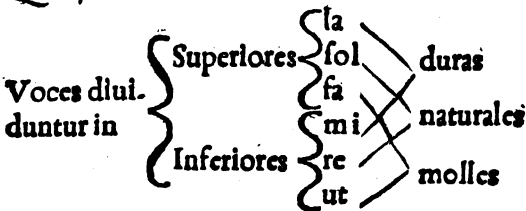 Voces diui-
duntur in
Superiores
la
ſol
fa
Inferiores
mi
re
ut
duras
naturales
molles